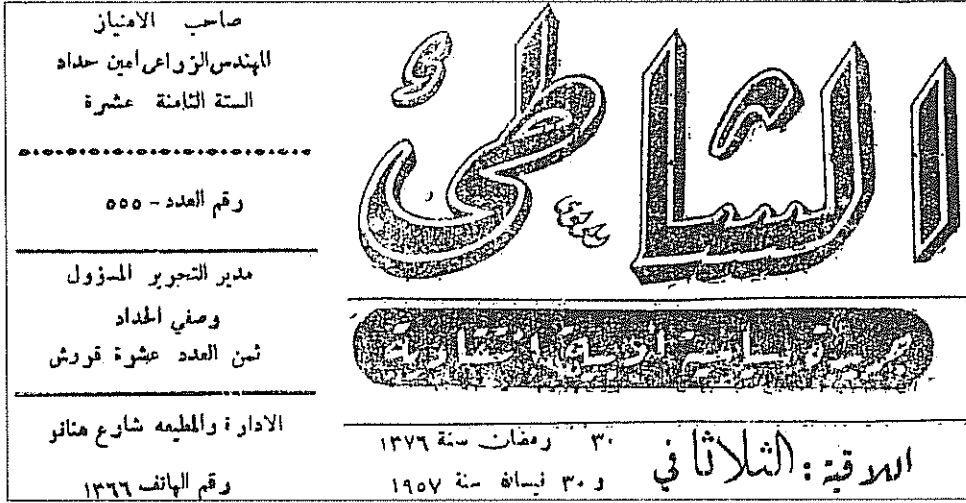 الشاطئ
جريدة سياسية أدبية انتقادية
اللاذقية : الثلاثا في
٣٠ رمضان سنة ١٣٧٦
و ٣٠ نيسان سنة ١٩٥٧
صاحب الامتياز
المهندس الزراعي امين حداد
السنة الثامنة عشرة
رقم العدد - ٥٥٥
مدير التحرير المسؤول
وصفي الحداد
ثمن العدد عشرة قروش
الادارة والمطبعه شارع هنانو
رقم الهاتف ١٣٦٦